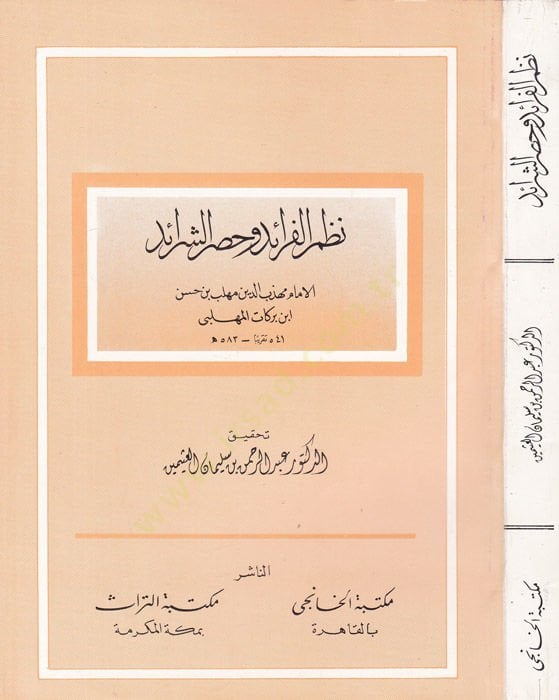 نظم الفرائد وحصر الشرائد
الامام مهذب الدين مهلب بن حسن
ابن بركات المهلبى
٥٤١ تقريبا - ٥٨٣ هـ
تحقيق
الدكتور عبد الرحمن بن سليمان العثيمين
الناشر
مكتبة الخانجى
بالقاهرة
مكتبة التراث
بمكة المكرمة
نظم الفرائد وحصر الشرائد
الدكتور عبد الرحمن بن سليمان العثيمين
مكتبة الخانجى